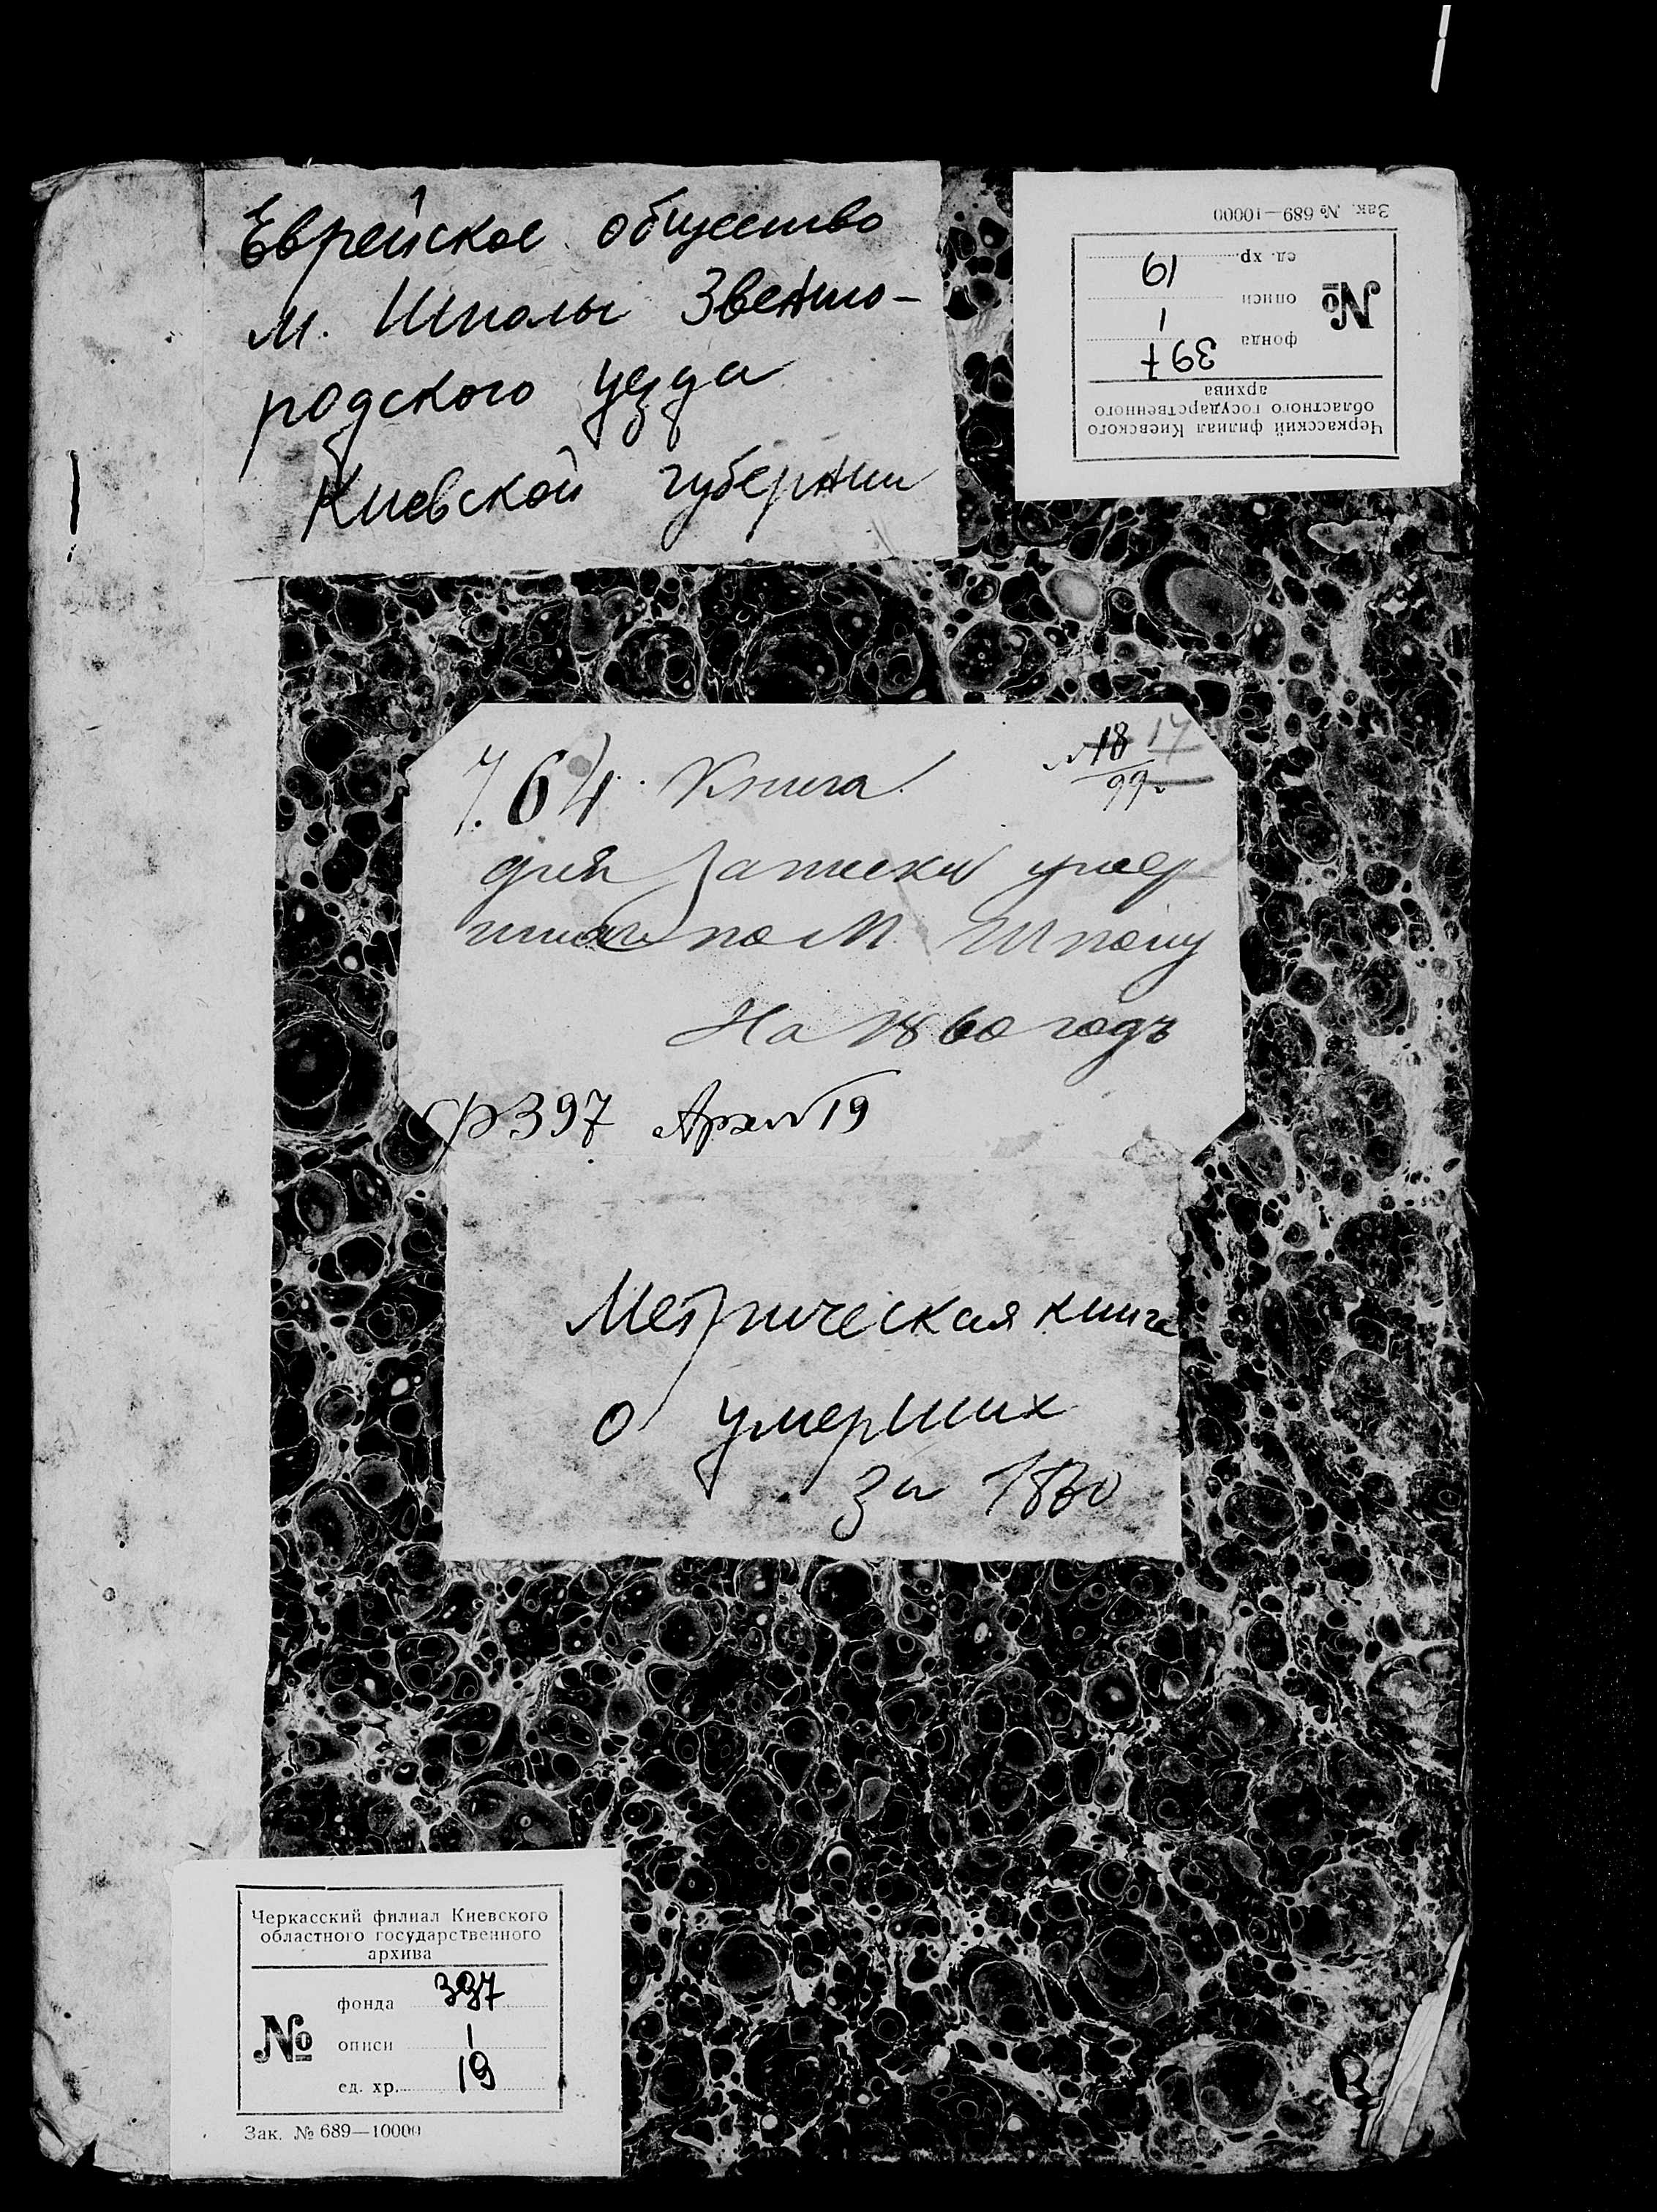 Еврейское общество
м. Шполы Звениго-
родского уезда
Киевской губернии
Зак. № 689—10000
Черкасский филиал Киевского
областного государственного
архива
№
фонда 397
описи 1
ед. хр. 19
7. 64. Книга
№ 18 17
99
для записки умер
ших по М. Шполу
На 1860 годъ
Ф 397 Арх № 19
Метрическая книга
о умерших
за 1860
Черкасский филиал Киевского
областного государственного
архива
№
фонда 397
описи 1
ед. хр. 19
Зак. № 689—10000